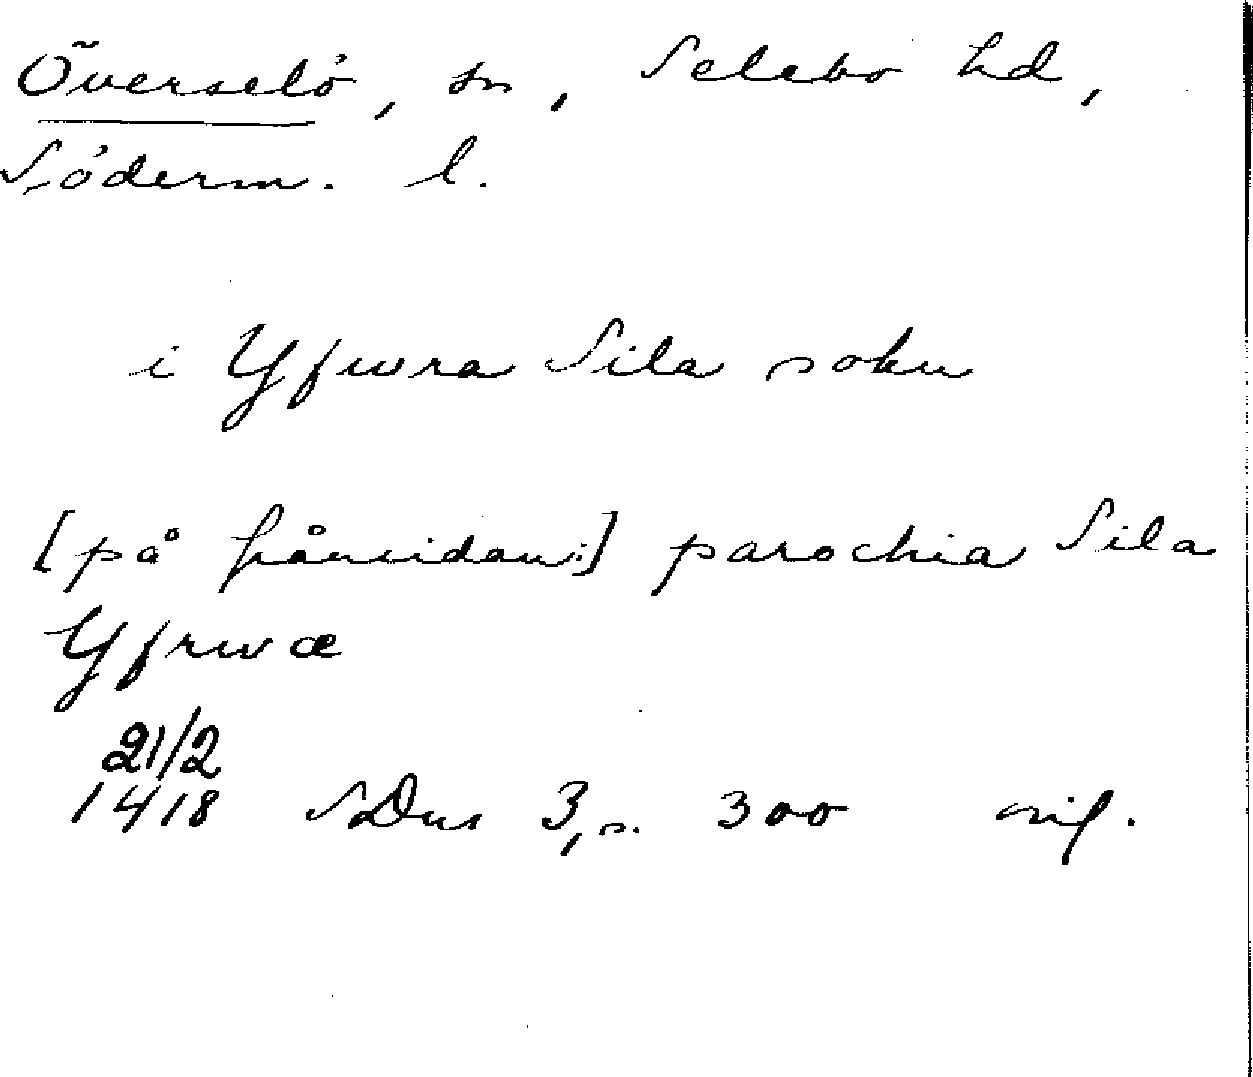 Överselö, sn, Selebo hd,
Söderm. l.
i Yfwra Sila sokn
[på frånsidan:] parochia Sila
Yfrwæ
21/2
1418 SDns 3, s. 300 orig.